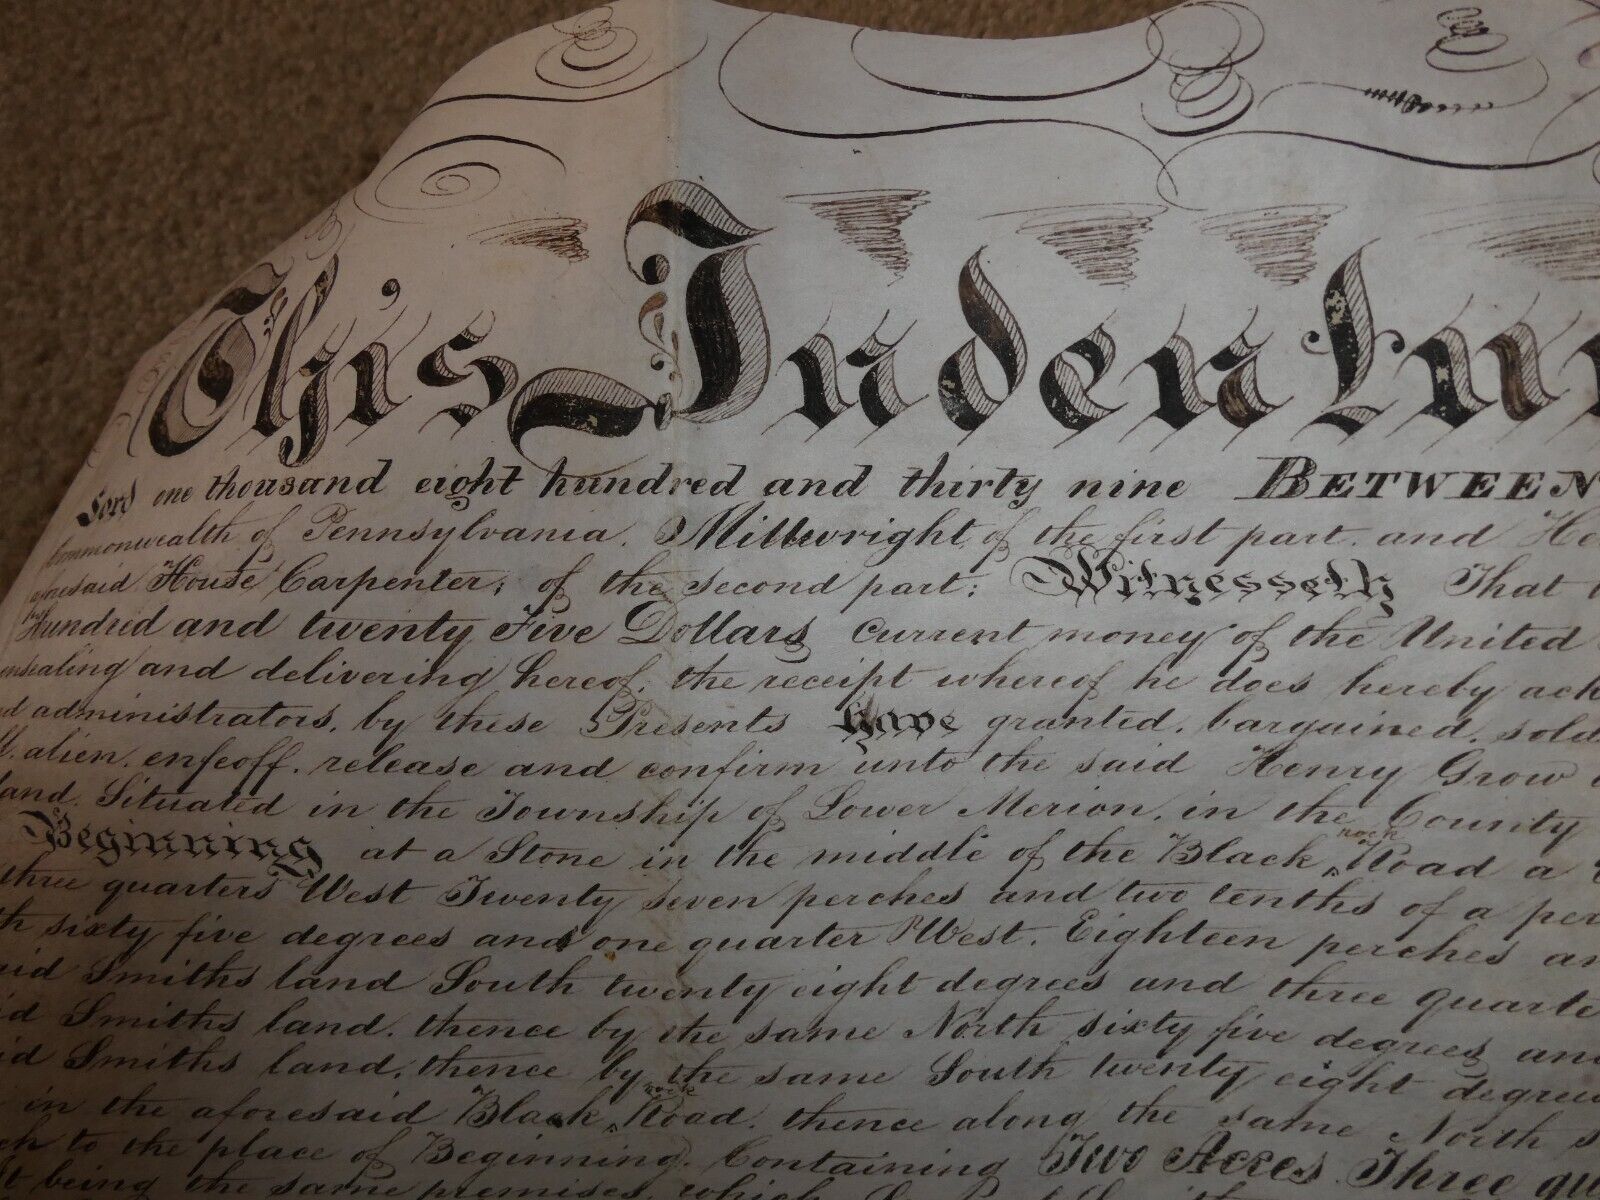 This Indentu
Lord one thousand eight hundred and thirty nine BETWEEN
Commonwealth of Pennsylvania. Millwright of the first part. and He
aforesaid House Carpenter; of the second part: Witnesseth That
Hundrid and twenty Five Dollars current money of the United
ensealing and delivering hereof, the receipt whereof he does hereby ack
d administrators, by these Presents have granted. bargained. sold
alien. enfeoff. release and confirm unto the said Henry Grow
land. Situated in the Township of Lower Merion, in the County
Beginning at a Stone in the middle of the Black ^rock Road a
three quarters West Twenty seven perches and two tenths of a per
th sixty five degrees and one quarter West. Eighteen perches an
aid Smiths land South twenty eight degrees and three quarte
id Smiths land. thence by the same North sixty five degrees and
id Smiths land, thence by the same South twenty eight degree
in the aforesaid Black ^rock Road. thence along the same North s
ch to the place of Beginning. Containing Two Acres Three qu
t being the same premises which